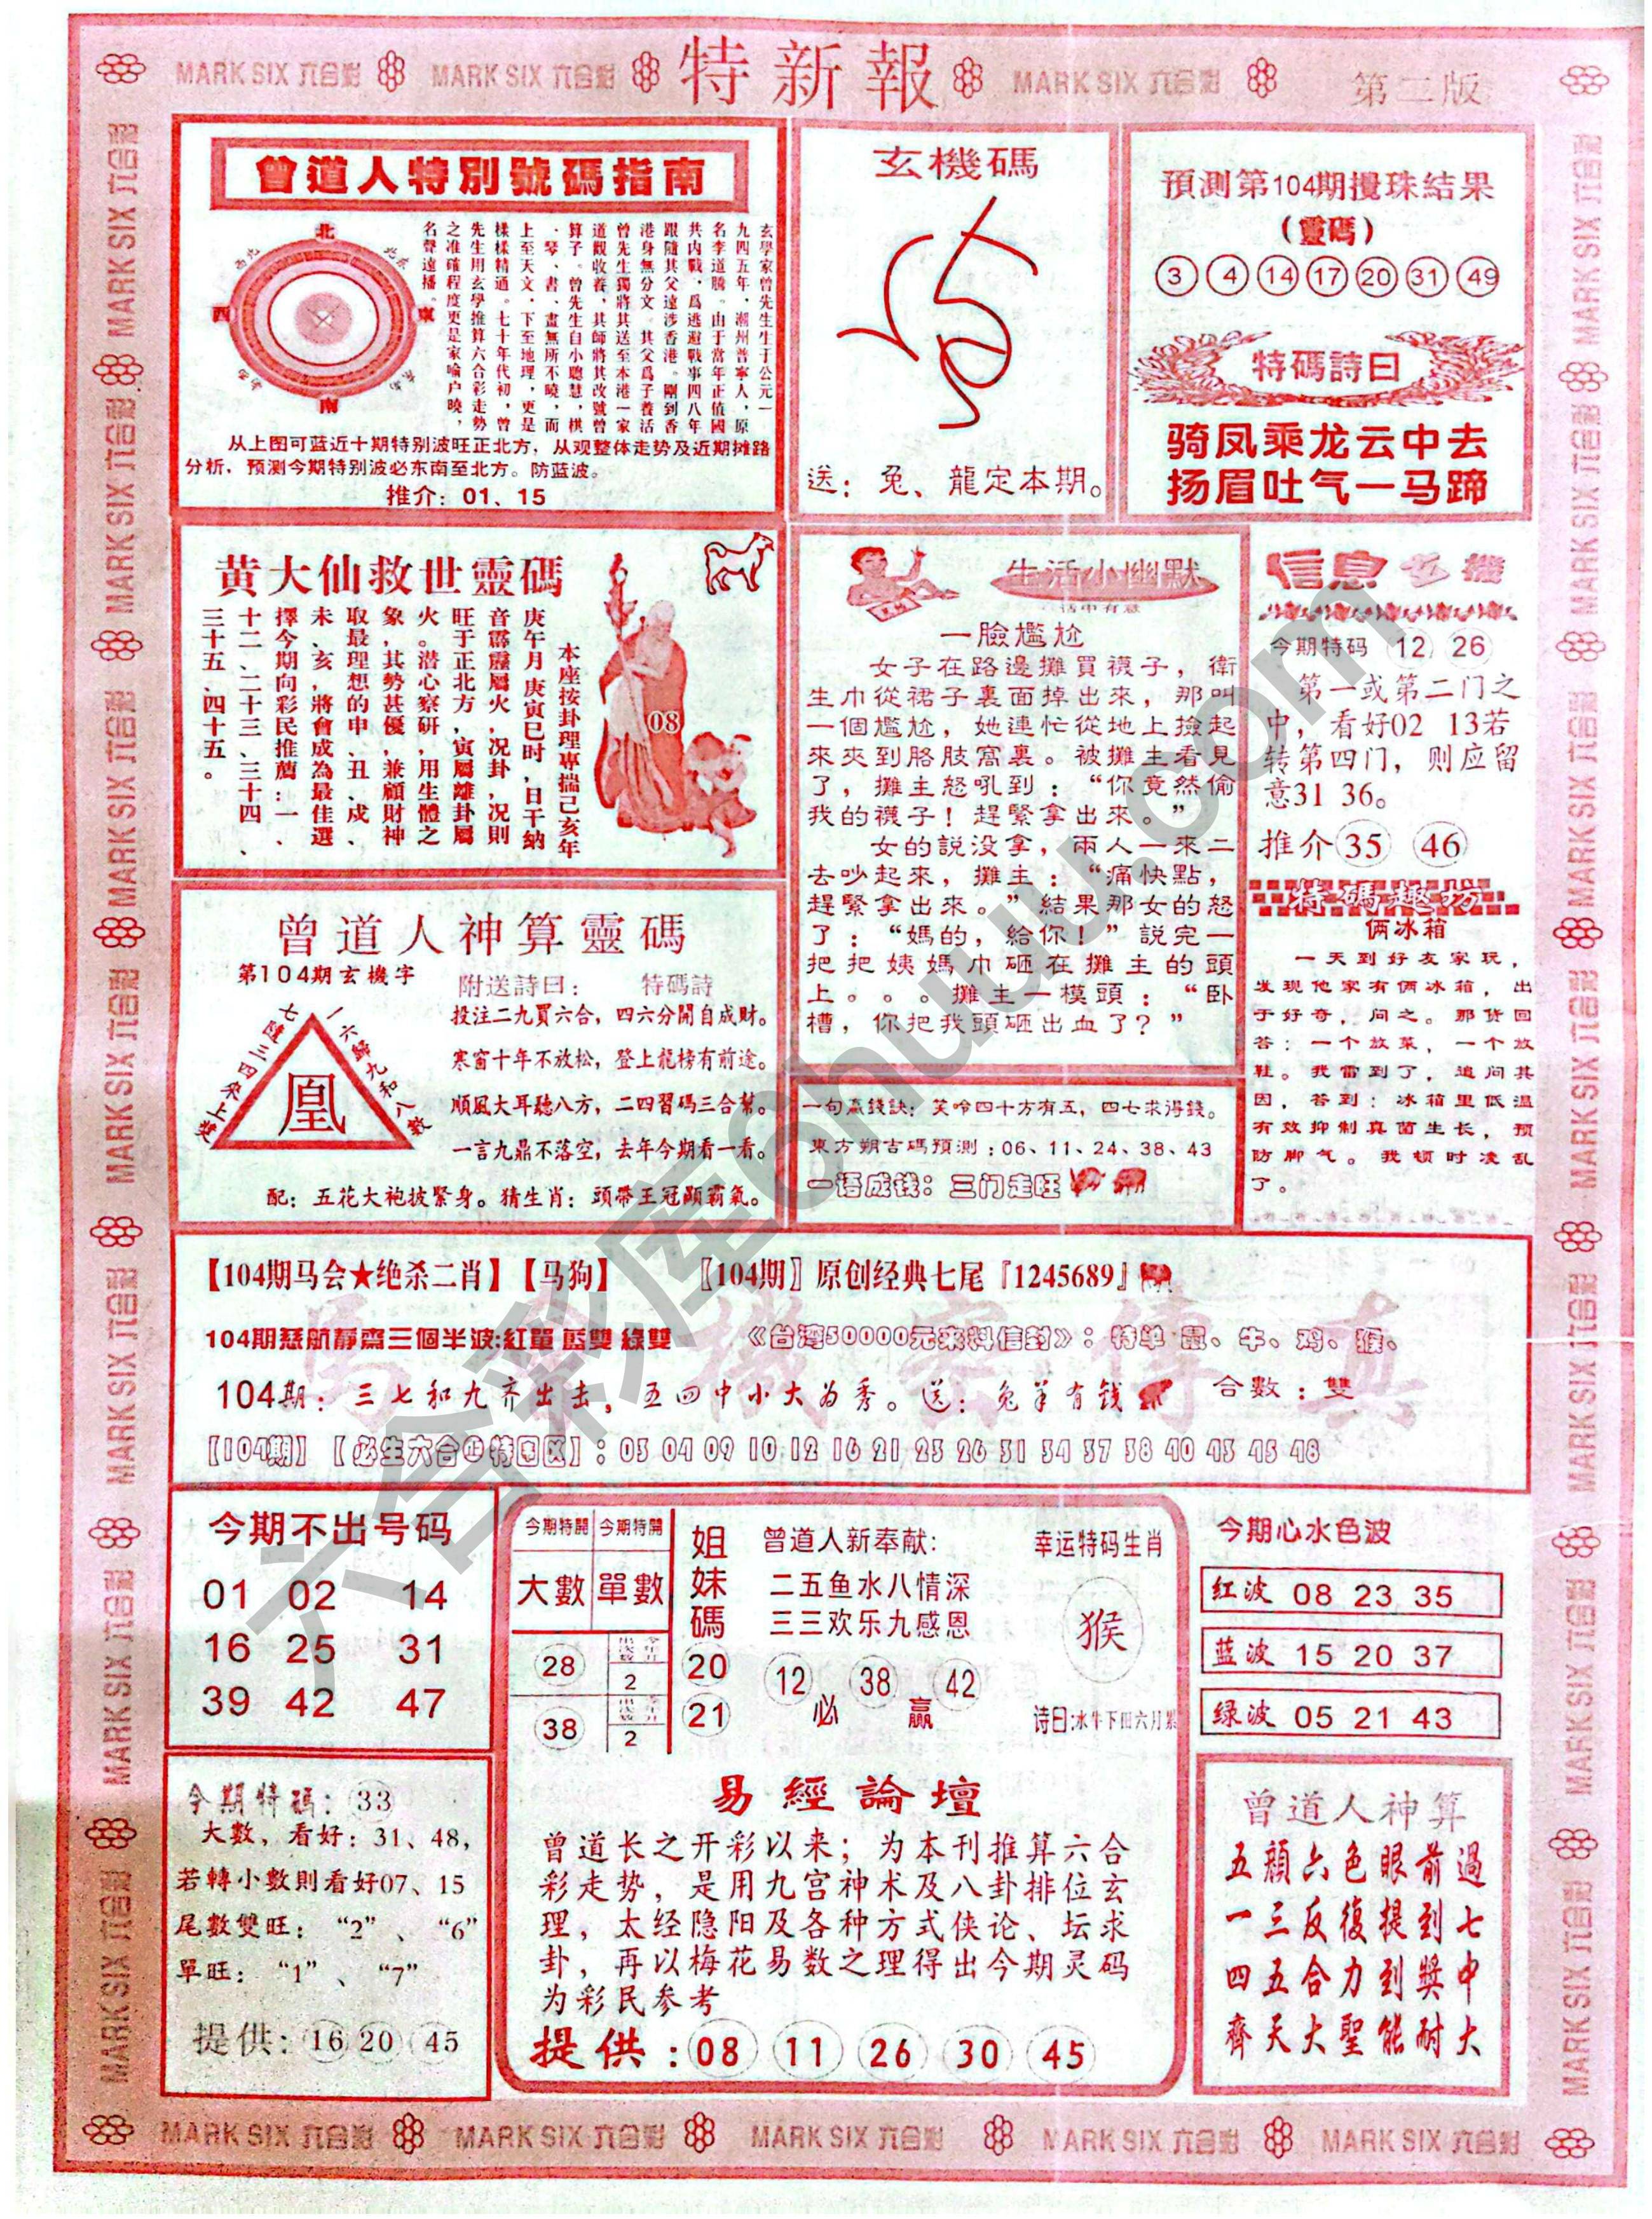 MARK SIX 六合彩
MARK SIX 六合彩
特新報
MARK SIX 六合彩
第二版
曾道人特別號碼指南
北
東
南
西
西北
玄學家曾先生生于公元一
九四五年，潮州普寧人，原
名李道騰。由于當年正值國
共内戰，爲逃避戰事四八年
跟隨其父遠涉香港。剛到香
港身無分文，其父爲子養活
曾先生獨將其送至本港一家
道觀收養，其師將其改號曾
算子。曾先生自小聰慧，棋
、琴、書、畫無所不曉，而
上至天文，下至地理，更是
樣樣精通。七十年代初，曾
先生用玄學推算六合彩走勢
之准確程度更是家喻户曉，
名聲遠播。
从上图可蓝近十期特别波旺正北方，从观整体走势及近期摊路
分析，预测今期特别波必东南至北方。防蓝波。
推介：01、15
玄機碼
送：兔、龍定本期。
預測第104期攪珠結果
（靈碼）
3 4 14 17 20 31 49
特碼詩曰
骑凤乘龙云中去
扬眉吐气一马蹄
黄大仙救世靈碼
本座按卦理專揣己亥年
庚午月庚寅巳时，日干納
音霹靂屬火，况卦，况則
旺于正北方，寅屬離卦屬
火。潜心察研，用生體之
象，其勢甚優，兼顧財神
取最理想的申、丑、戌、
未、亥，將會成為最佳選
擇今期向彩民推薦：一、
十二、二十三、三十四、
三十五、四十五。
08
生活小幽默
一臉尷尬
女子在路邊攤買襪子，衛
生巾從裙子裏面掉出來，那叫
一個尷尬，她連忙從地上撿起
來夾到胳肢窩裏。被攤主看見
了，攤主怒吼到：“你竟然偷
我的襪子！趕緊拿出來。”
女的説没拿，兩人一來二
去吵起來，攤主：“痛快點，
趕緊拿出來。”結果那女的怒
了：“媽的，給你！”説完一
把把姨媽巾砸在攤主的頭
上。。。攤主一模頭：“卧
槽，你把我頭砸出血了？”
信息玄機
今期特码 12 26
第一或第二门之
中，看好02 13若
转第四门，则应留
意31 36。
推介 35 46
特碼趣坊
俩冰箱
一天到好友家玩，
发现他家有俩冰箱，出
于好奇，问之。那货回
答：一个放菜，一个放
鞋。我雷到了，追问其
因，答到：冰箱里低温
有效抑制真菌生长，预
防脚气。我顿时凌乱
了。
曾道人神算靈碼
第104期玄機字
一六歸九和八數
凰
附送詩曰： 特碼詩
投注二九買六合，四六分開自成财。
寒窗十年不放松，登上龍榜有前途。
順風大耳聽八方，二四習碼三合幫。
一言九鼎不落空，去年今期看一看。
配：五花大袍披緊身。猜生肖：頭帶王冠顯霸氣。
一句贏錢訣：笑吟四十方有五，四七求得錢。
東方朔吉碼預測：06、11、24、38、43
一语成钱：三门走旺
【104期马会★绝杀二肖】【马狗】
〖104期〗原创经典七尾『1245689』
104期慈航靜齋三個半波:紅單 藍雙 綠雙
《台湾50000元来料信封》：特单 鼠、牛、鸡、猴、
104期：三七和九齐出击，五四中小大为秀。送：兔羊有钱 合數：雙
【104期】【必生六合㊣特围区】：03 04 09 10 12 16 21 23 26 31 34 37 38 40 43 45 48
今期不出号码
01 02 14
16 25 31
39 42 47
今期特開 今期特開
大數 單數
28 2
38 2
姐妹碼
20
21
曾道人新奉献：
二五鱼水八情深
三三欢乐九感恩
12 38 42
必 赢
幸运特码生肖
猴
诗曰:水牛下田六月累
今期心水色波
红波 08 23 35
蓝波 15 20 37
绿波 05 21 43
今期特碼：33
大數，看好：31、48，
若轉小數則看好07、15
尾數雙旺：“2”、“6”
單旺：“1”、“7”
提供：16 20 45
易經論壇
曾道长之开彩以来；为本刊推算六合
彩走势，是用九宫神术及八卦排位玄
理，太经隐阳及各种方式侠论、坛求
卦，再以梅花易数之理得出今期灵码
为彩民参考
提供：08 11 26 30 45
曾道人神算
五顏六色眼前過
一三反復提到七
四五合力到獎中
齊天大聖能耐大
MARK SIX 六合彩
MARK SIX 六合彩
MARK SIX 六合彩
MARK SIX 六合彩
MARK SIX 六合彩
六合彩库6huuu.com